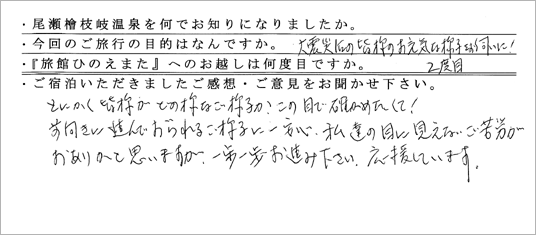 ・尾瀬檜枝岐温泉を何でお知りになりましたか。
・今回のご旅行の目的はなんですか。 大震災后の皆様のお元気な様子を伺いに!
・『旅館ひのえまた』へのお越しは何度目ですか。 2度目
・ご宿泊いただきましたご感想・ご意見をお聞かせ下さい。
とにかく皆様がどの様なご様子か、この目で確かめたくて!
前向きに進んでおられるご様子に一安心、私達の目に見えないご苦労が
おありかと思いますが、一歩一歩お進み下さい。応援しています。